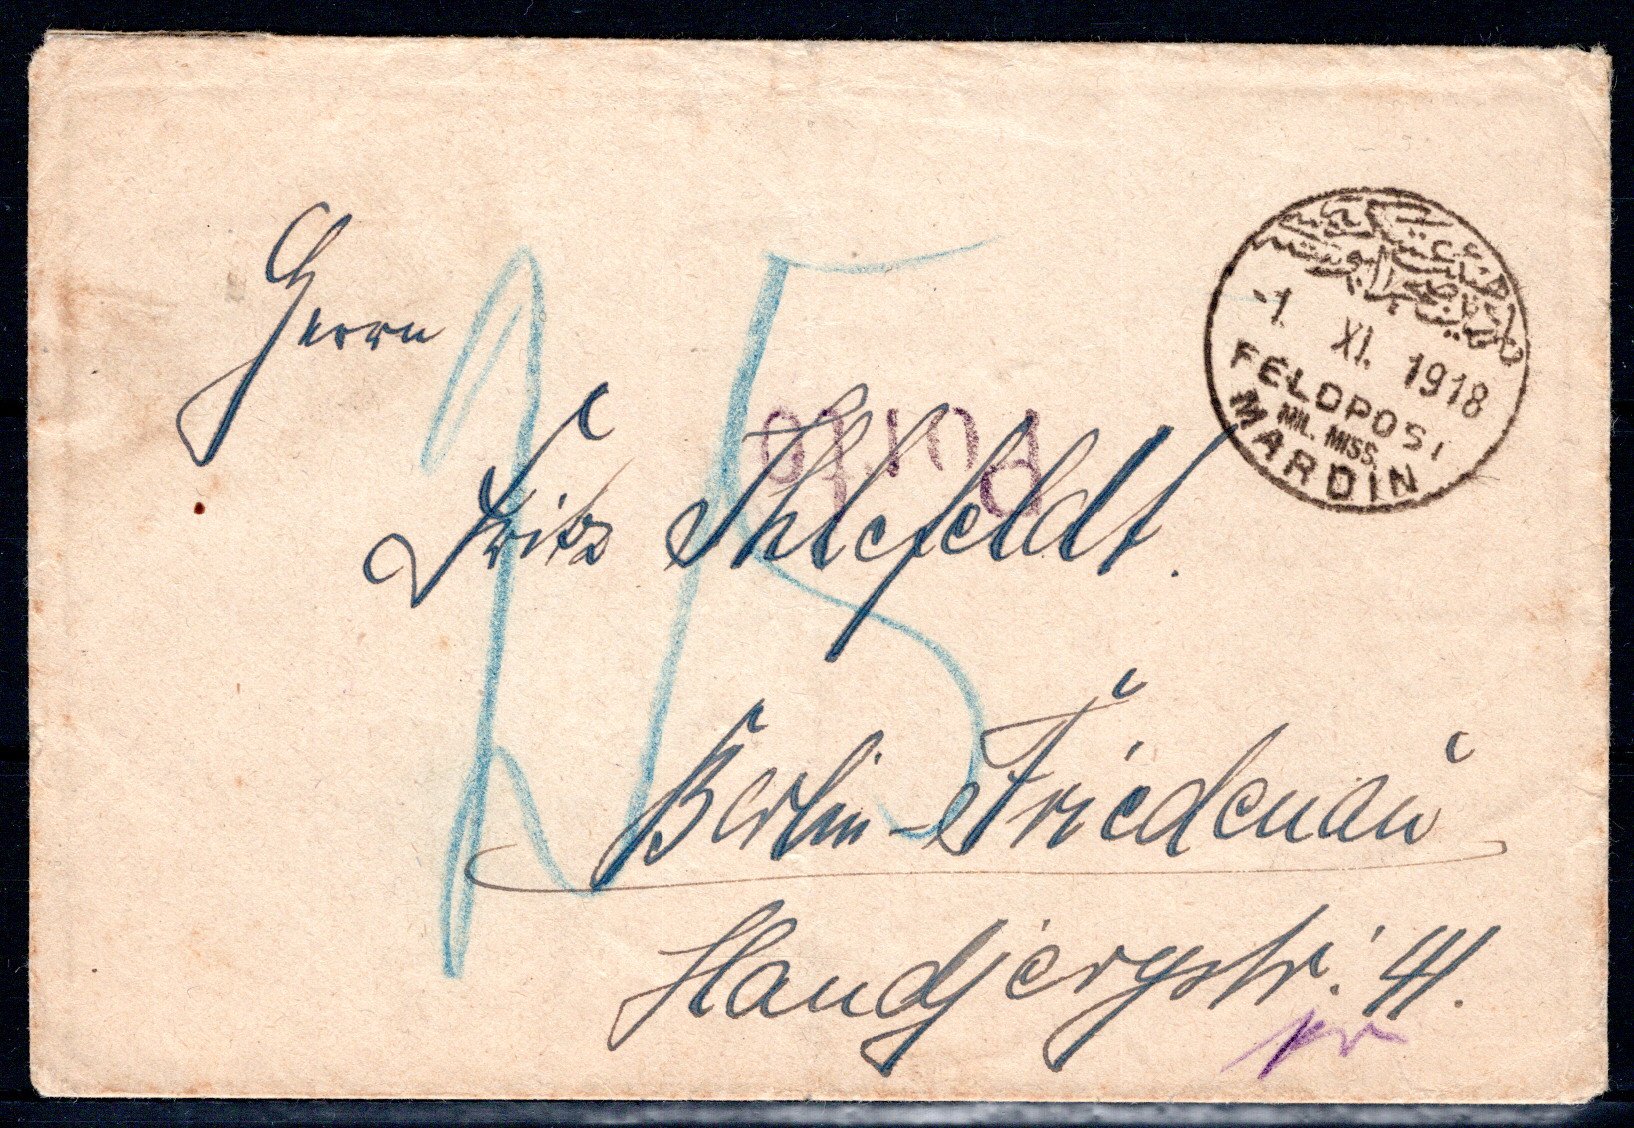 -1. XI. 1918
FELDPOST
MIL. MISS.
MARDIN
Herrn
Fritz Ihlefeldt.
Porto
Berlin-Friedenau
Handjerystr. 41.
15